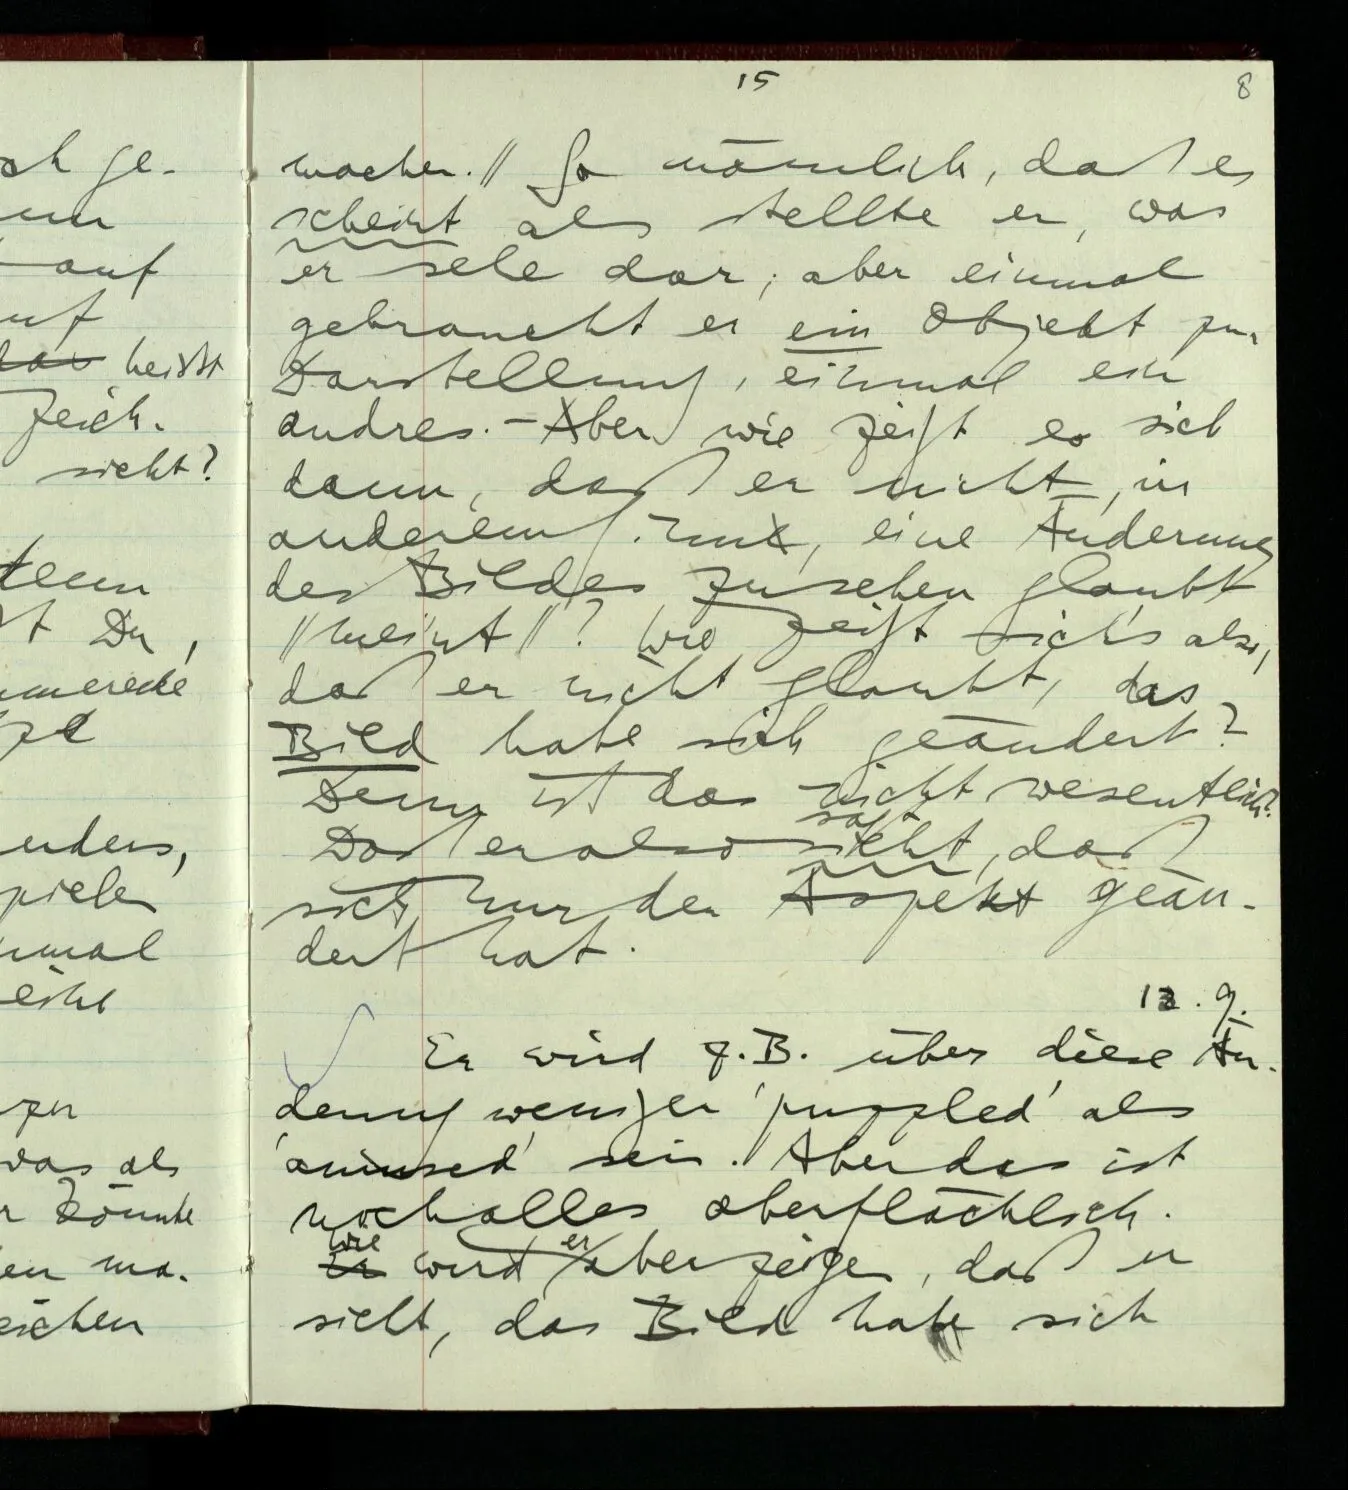 15
8
machen. // So nämlich, daß es
scheint als stellte er, was
er sehe dar; aber einmal
gebraucht er ein Objekt zur
Darstellung, einmal ein
andres. – Aber wie zeigt es sich
dann, daß er nicht, in
anderem Sinne, eine Änderung
des Bildes zu sehen glaubt
//meint//? Wie zeigt sich's also,
daß er nicht glaubt, das
Bild habe sich geändert?
Denn ist das nicht wesentlich?
sagt
Daß er also sieht, daß
sich nur der Aspekt geän-
dert hat.
12. 9.
Er wird z.B. über diese Än-
derung weniger 'puzzled' als
'amused' sein. Aber das ist
noch alles oberflächlich.
Wie er
Er wird aber zeigen, daß er
sieht, das Bild habe sich
ch ge-
auf
auf
das heisst
Zeich-
nicht?
Du,
anders,
zur
was als
könnte
ma-